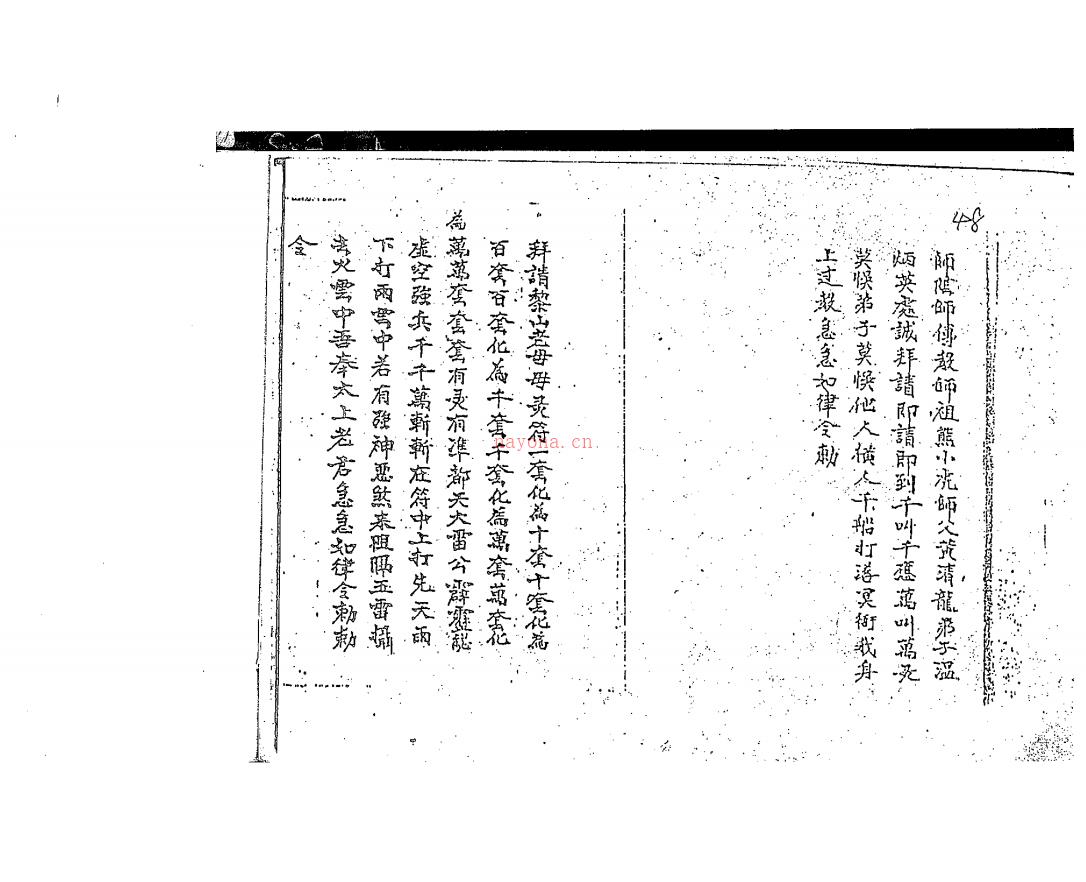 48
師陰師傅教師祖熊小洗師父黃清龍弟子溫
炳英處誠拜請即請即到千叫千應萬叫萬灵
莫悞弟子莫悞他人橫人千船打落冥街我身
上过教急急如律令勅
拜請黎山老母母灵符一套化為十套十套化為
百套百套化為千套千套化為萬套萬套化
為萬萬套套套有灵有準都天大雷公霹靂
虛空強兵千千萬斬斬在符中上打先天雨
下打雨雲中若有強神惡煞来阻隔玉雷攝
火雲中吾奉太上老君急急如律令勅勅
令
nayona.cn.